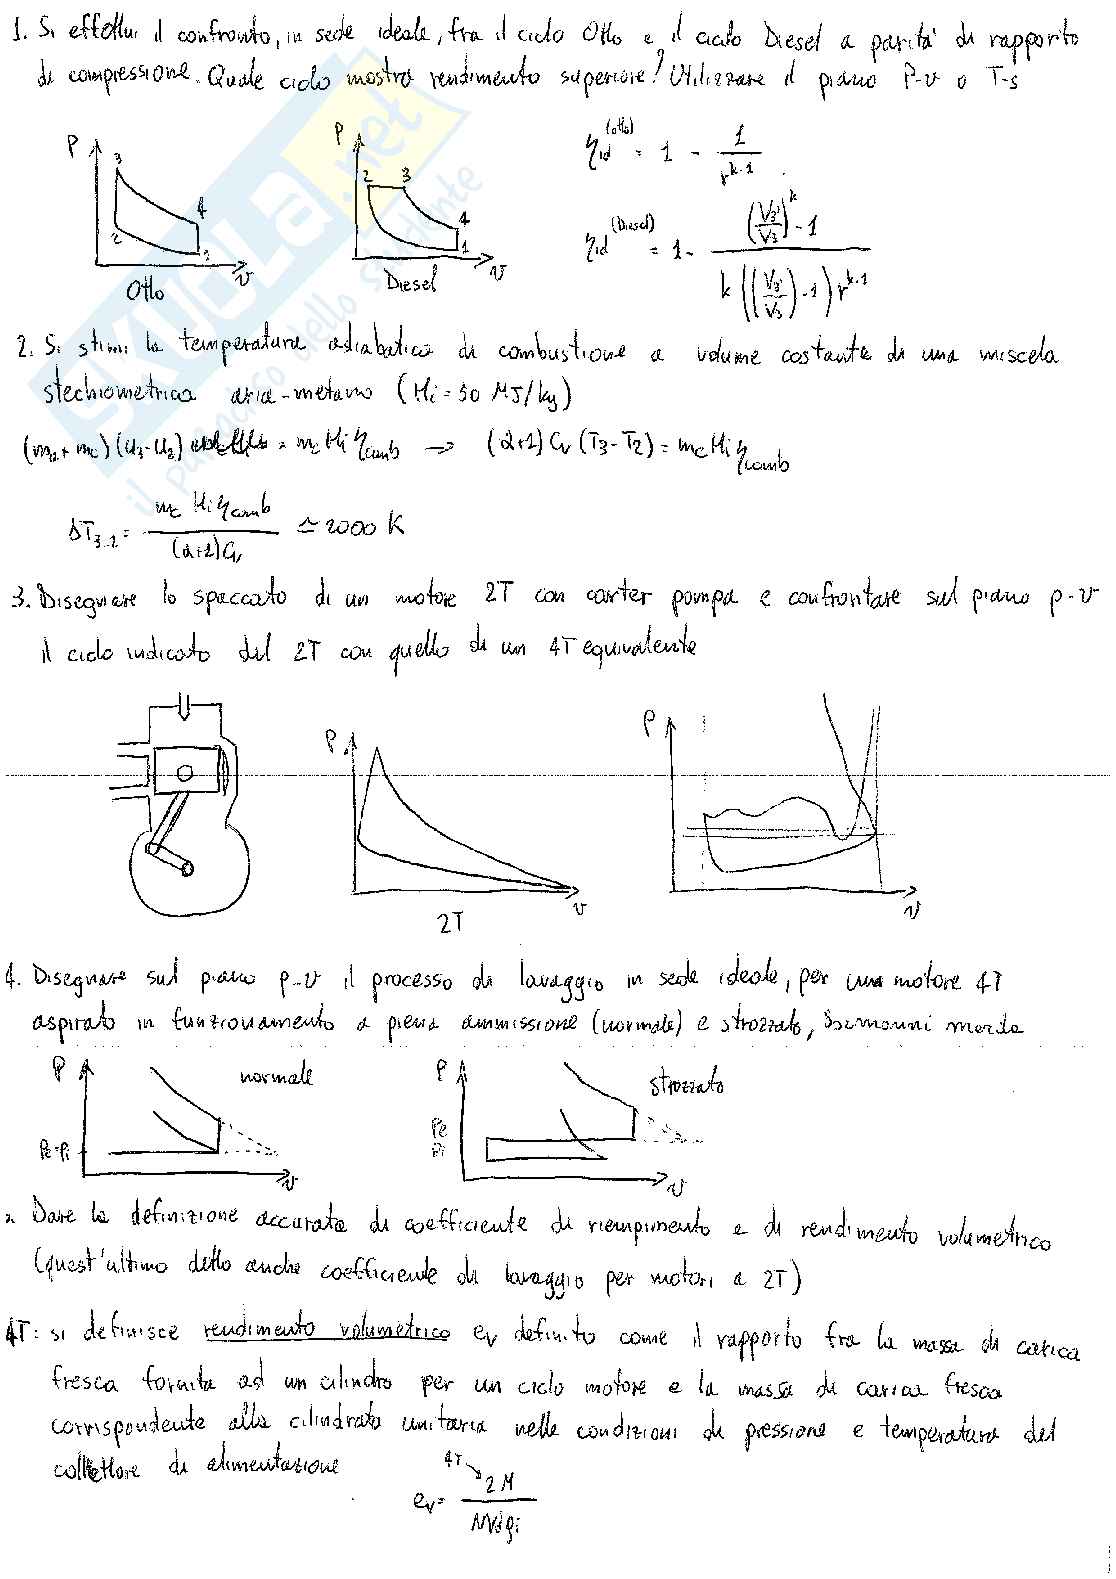 1. Si effettui il confronto, in sede ideale, fra il ciclo Otto e il ciclo Diesel a parità di rapporto
di compressione. Quale ciclo mostra rendimento superiore? Utilizzare il piano P-v o T-s
P 3 2 4 1 v Otto
P 2 3 4 1 v Diesel
η_id^(otto) = 1 - 1 / r^(k-1)
η_id^(Diesel) = 1 - ((V3'/V3)^k - 1) / (k ((V3'/V3) - 1) r^(k-1))
2. Si stimi la temperatura adiabatica di combustione a volume costante di una miscela
stechiometrica aria-metano (Hi = 50 MJ/kg)
(ma + mc)(u3 - u2) = mc Hi ηcomb → (α+1) Cv (T3 - T2) = mc Hi ηcomb
ΔT3-2 = mc Hi ηcomb / (α+1) Cv ≃ 2000 K
3. Disegnare lo spaccato di un motore 2T con carter pompa e confrontare sul piano p-v
il ciclo indicato del 2T con quello di un 4T equivalente
P v 2T
P v
4. Disegnare sul piano p-v il processo di lavaggio in sede ideale, per un motore 4T
aspirato in funzionamento a piena ammissione (normale) e strozzato,
P normale Pe=Pi v
P strozzato Pe Pi v
Dare la definizione accurata di coefficiente di riempimento e di rendimento volumetrico
(quest'ultimo detto anche coefficiente di lavaggio per motori a 2T)
4T: si definisce rendimento volumetrico ev definito come il rapporto fra la massa di carica
fresca fornita ad un cilindro per un ciclo motore e la massa di carica fresca
corrispondente alla cilindrata unitaria nelle condizioni di pressione e temperatura del
collettore di alimentazione
4T
ev = 2 M / NVdρi
SKUOLA.net
il paradiso dello studente